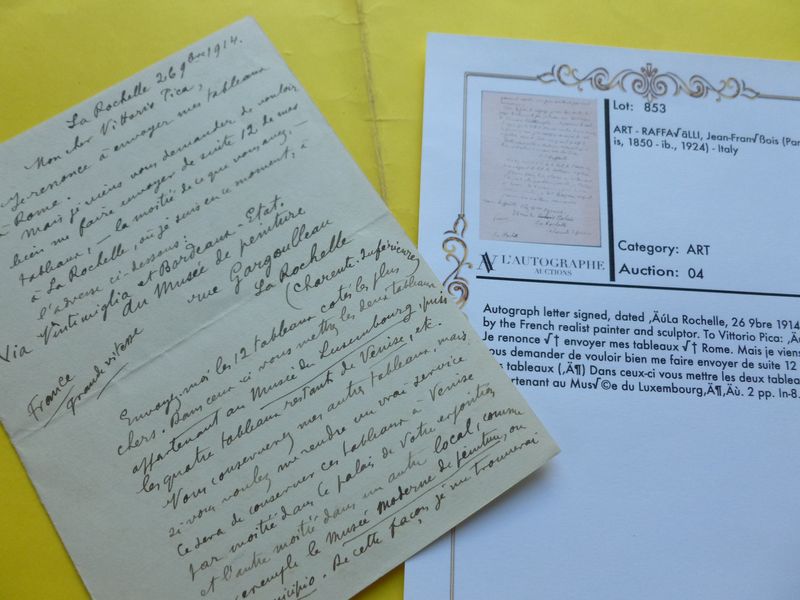 La Rochelle 26 9bre 1914.
Mon cher Vittorio Pica,
Je renonce à envoyer mes tableaux
à Rome.
Mais je viens vous demander de vouloir
bien me faire envoyer de suite 12 de mes
tableaux, — la moitié de ce que vous avez, —
à La Rochelle, où je suis en ce moment; à
l'adresse ci-dessous:
Via Vintimiglia et Bordeaux-Etat.
au Musée de peinture
rue Gargoulleau
La Rochelle
France (Charente-Inférieure)
Grande vitesse
Envoyez-moi les 12 tableaux cotés les plus
chers. Dans ceux-ci vous mettez les deux tableaux
appartenant au Musée du Luxembourg, puis
les quatre tableaux restant de Venise, etc.
Vous conserverez mes autres tableaux, mais
si vous voulez me rendre un vrai service
ce sera de conserver ces tableaux à Venise
par moitié dans le palais de votre exposition
et l'autre moitié dans un autre local, comme
exemple le Musée moderne de peinture, ou
De cette façon, je me trouverai
Lot: 853
ART - RAFFA√ãLLI, Jean-Fran√ßois (Par
is, 1850 - ib., 1924) - Italy
L'AUTOGRAPHE
AUCTIONS
Category: ART
Auction: 04
Autograph letter signed, dated ‚Äúla Rochelle, 26 9bre 1914
by the French realist painter and sculptor. To Vittorio Pica: ‚Äú
Je renonce √† envoyer mes tableaux √† Rome. Mais je viens
vous demander de vouloir bien me faire envoyer de suite 12
tableaux (‚Ä¶) Dans ceux-ci vous mettez les deux tableau
artenant au Mus√©e du Luxembourg‚Ä¶‚Äù. 2 pp. In-8.